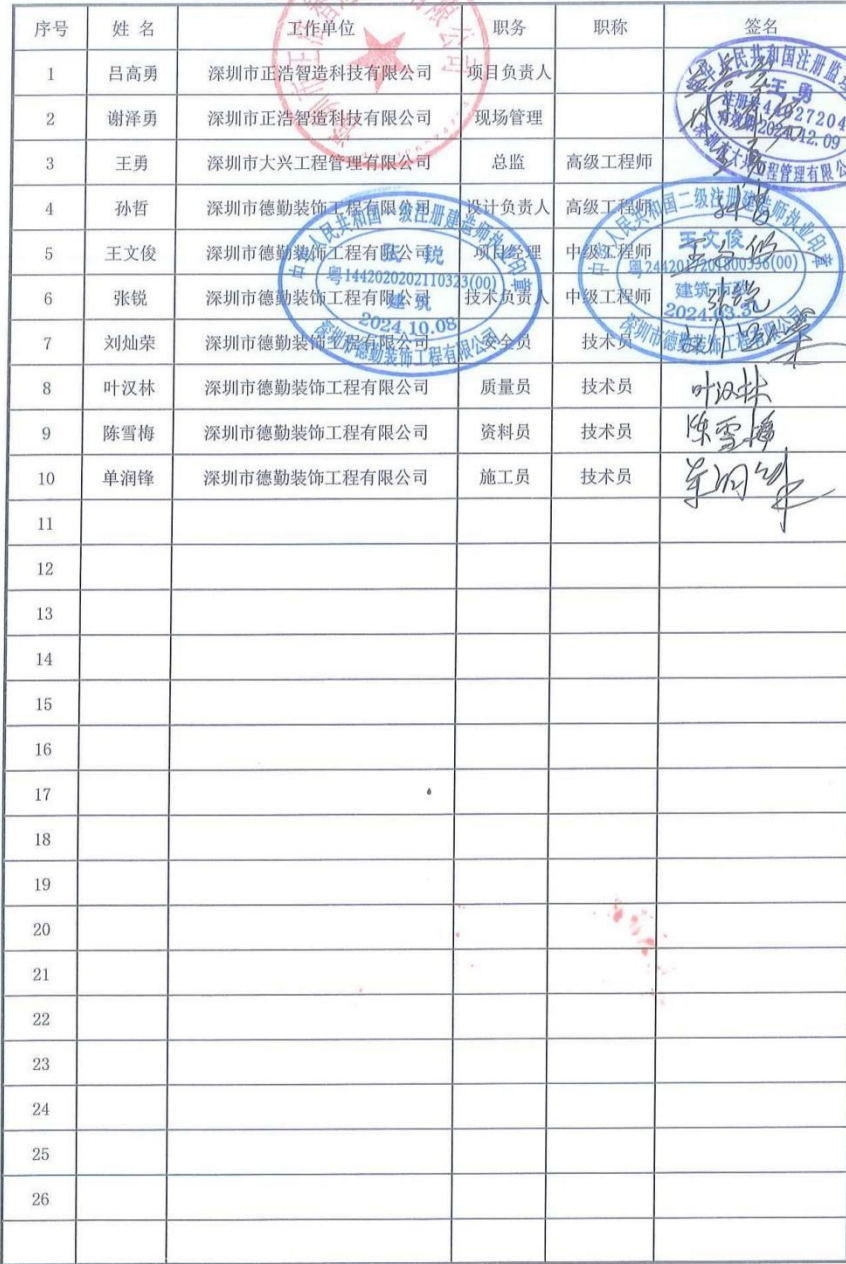 序号 姓 名 工作单位 职务 职称 签名
1 吕高勇 深圳市正浩智造科技有限公司 项目负责人
2 谢泽勇 深圳市正浩智造科技有限公司 现场管理
3 王勇 深圳市大兴工程管理有限公司 总监 高级工程师
4 孙哲 深圳市德勤装饰工程有限公司 设计负责人 高级工程师 孙哲
5 王文俊 深圳市德勤装饰工程有限公司 项目经理 中级工程师 王文俊
6 张锐 深圳市德勤装饰工程有限公司 技术负责人 中级工程师 张锐
7 刘灿荣 深圳市德勤装饰工程有限公司 安全员 技术员
8 叶汉林 深圳市德勤装饰工程有限公司 质量员 技术员 叶汉林
9 陈雪梅 深圳市德勤装饰工程有限公司 资料员 技术员 陈雪梅
10 单润锋 深圳市德勤装饰工程有限公司 施工员 技术员 单润锋
11
12
13
14
15
16
17
18
19
20
21
22
23
24
25
26
王 勇
2024.12.09
中华人民共和国一级注册建造师执业印章
张 锐
粤1442020202110323(00)
建 筑
2024.10.08
深圳市德勤装饰工程有限公司
中华人民共和国二级注册建造师执业印章
王文俊
建筑 市政
深圳市德勤装饰工程有限公司